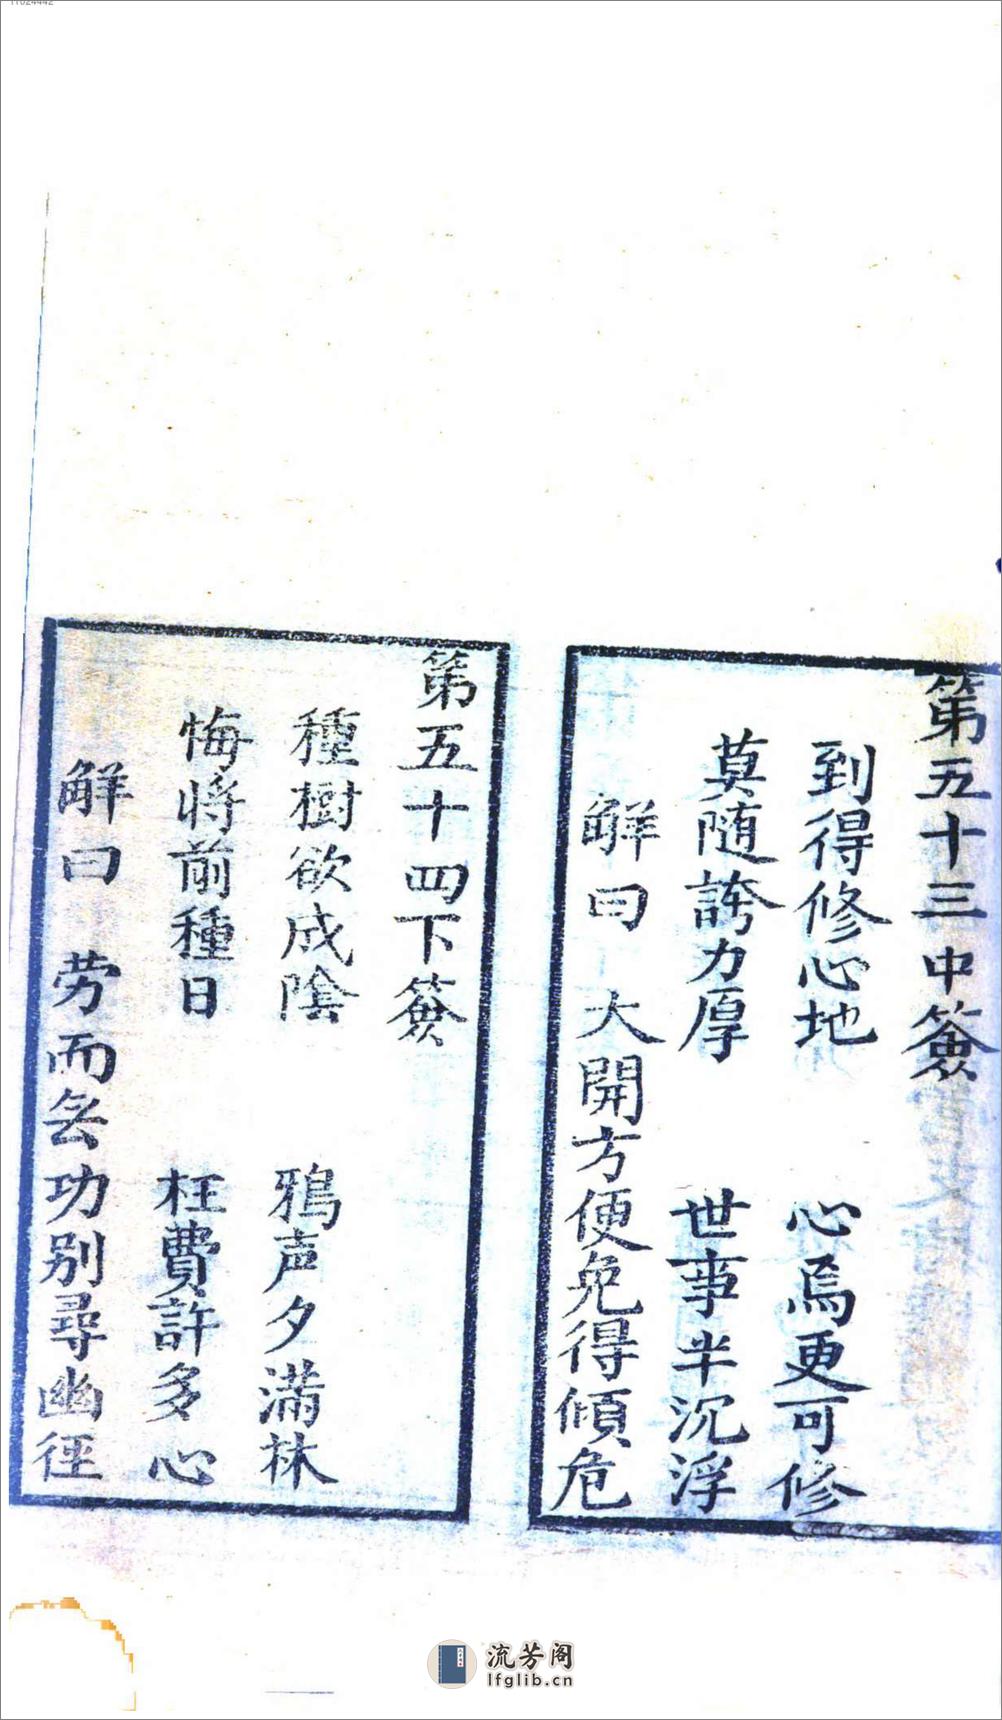 11024442
第五十三中簽
到得修心地　心焉更可修
莫随誇力厚　世事半沉浮
解曰　大開方便免得傾危
第五十四下簽
種樹欲成陰　鴉声夕满林
悔将前種日　枉費許多心
解曰　劳而无功别尋幽徑
流芳阁
lfglib.cn